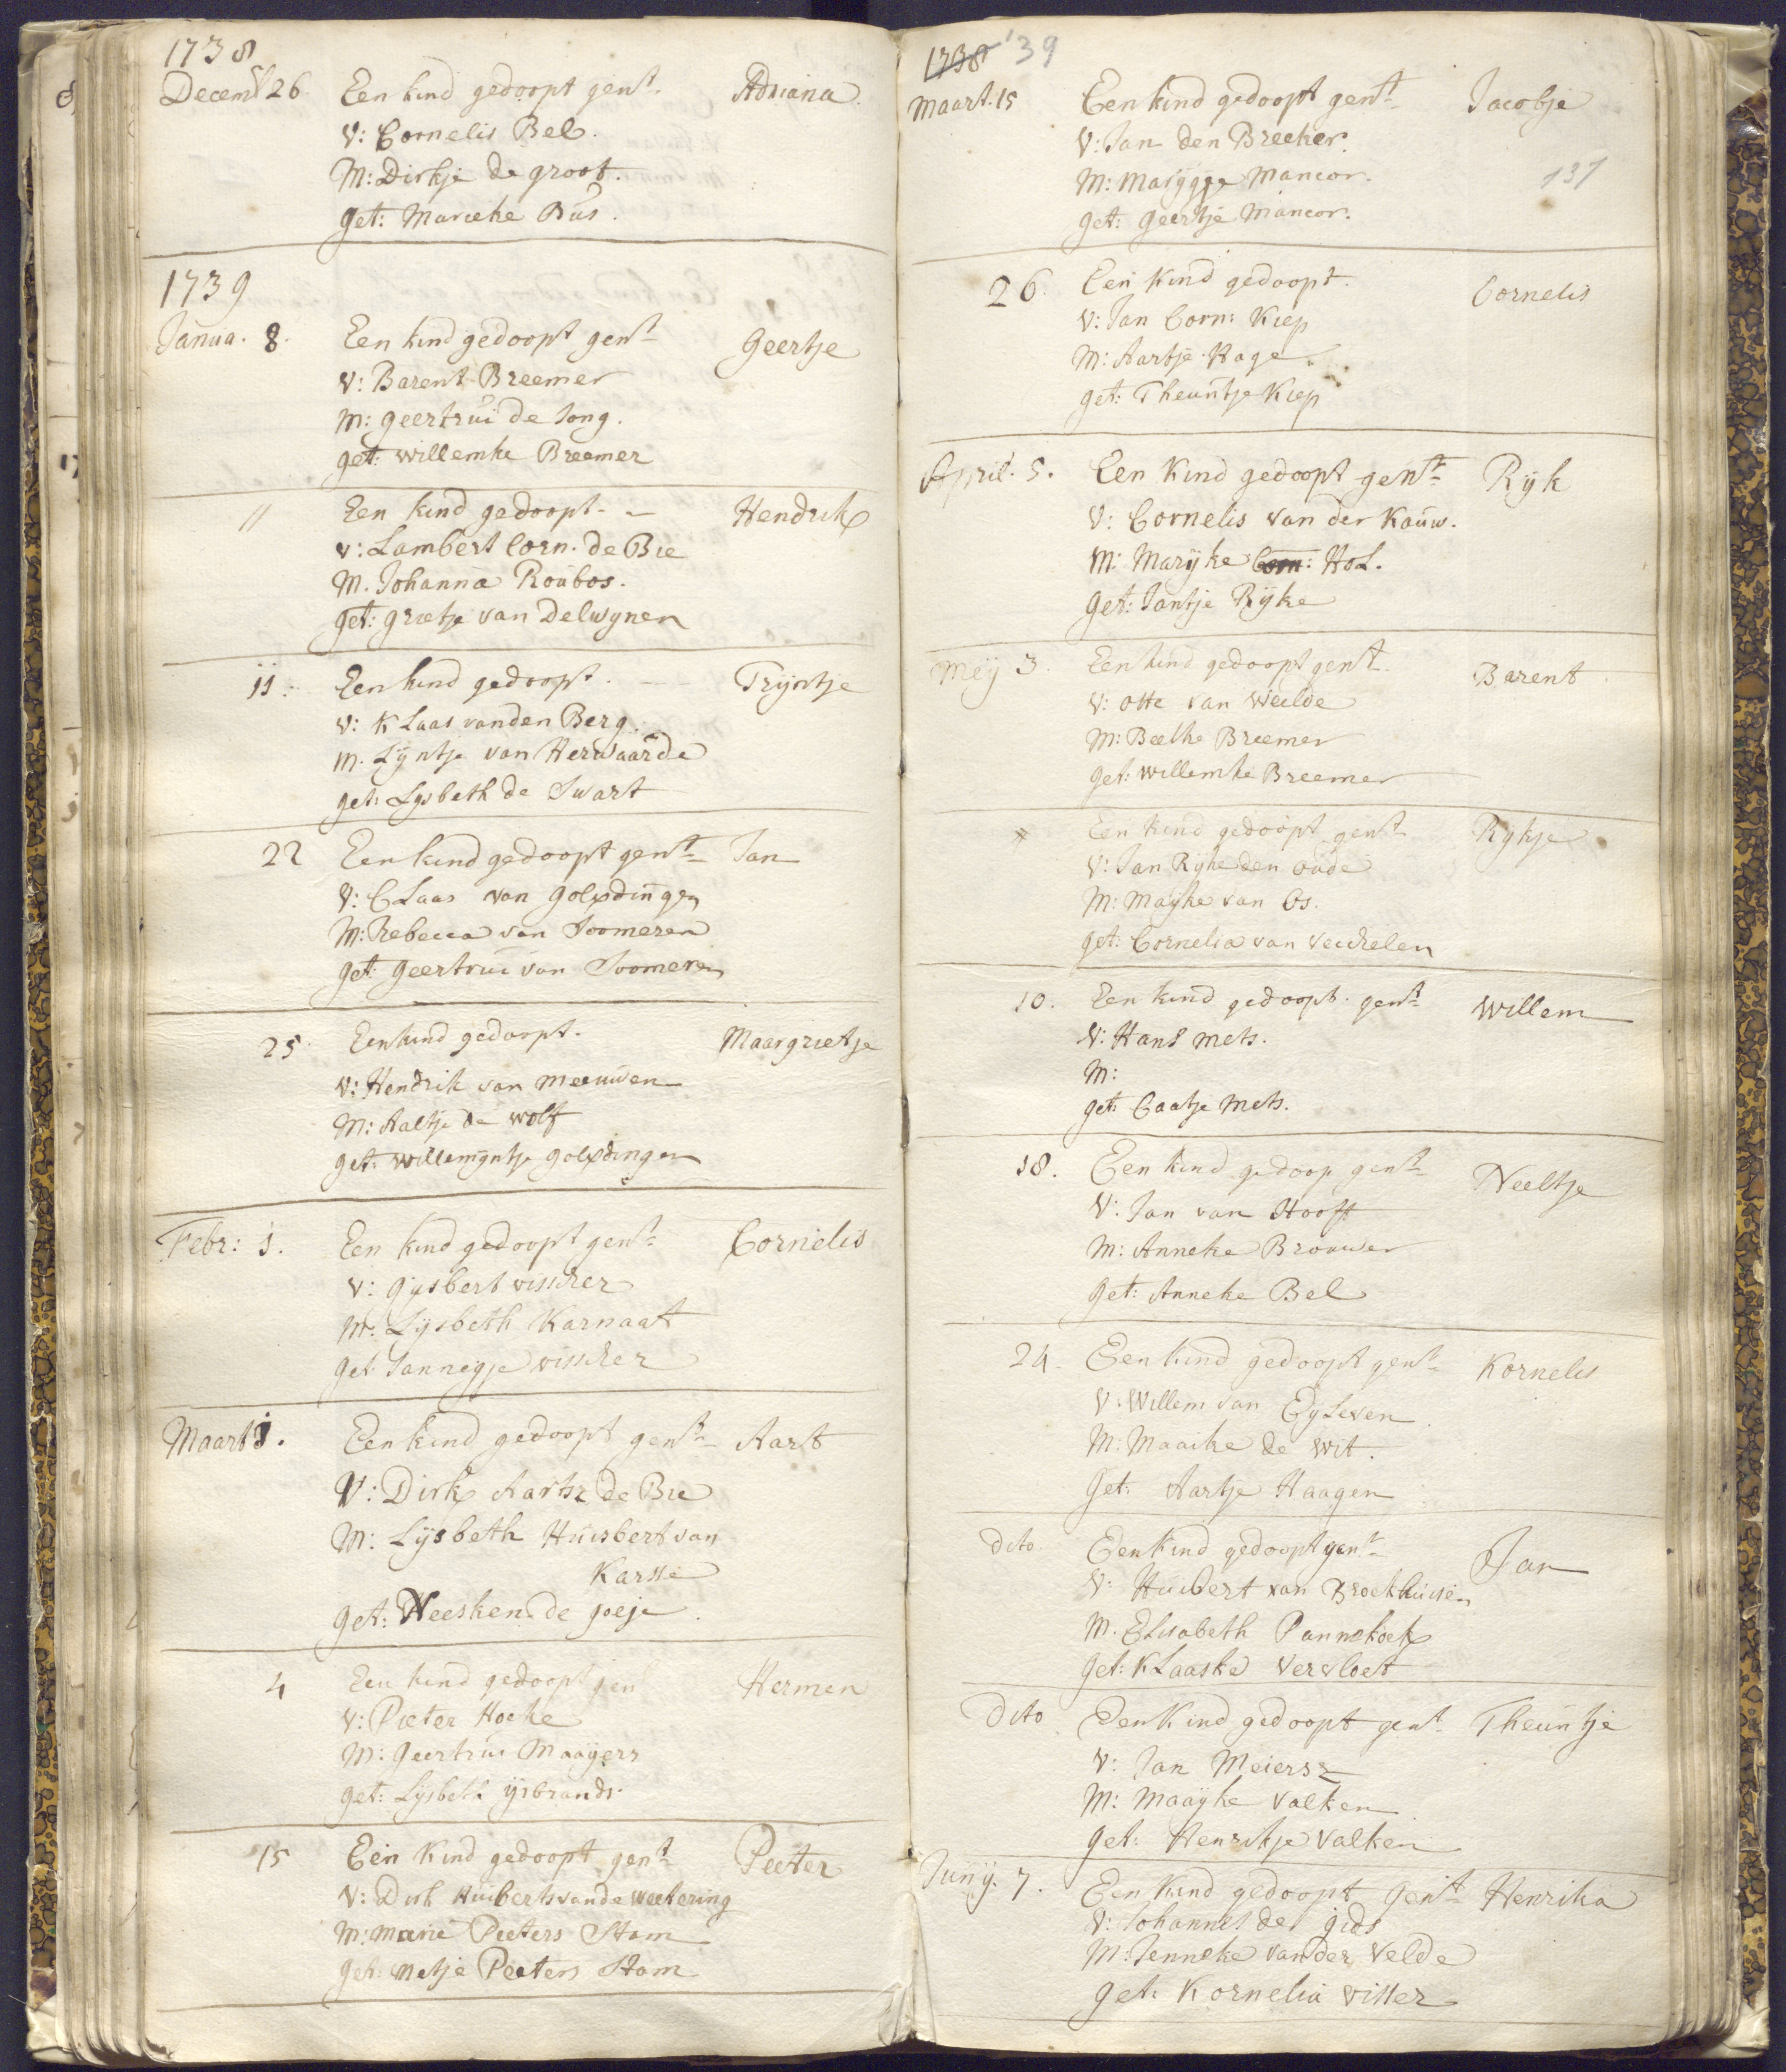 1738
Decemb 26. Een kind gedoopt gent. Adriana.
V: Cornelis Bel.
M: Dirkje de groot.
Get: Marieke Bus.
1739
Janua. 8. Een kind gedoopt gent Geertje
V: Barent Breemer
M: geertrui de Jong.
get: willemke Breemer
11 Een kind gedoopt. - Hendrik
V: Lambert Corn. de Bie
M. Johanna Roubos.
get: grietje van Delwynen
11. Een kind gedoopt. Tryntje
V: Klaas vanden Berg.
M. Lyntje van Herwaarde
get: Lysbeth de Swart
22 Een kind gedoopt gent Jan
V: Claas van golverdingen
M: Rebecca van Soomeren
get: geertrui van Soomeren
25. Een kind gedoopt. Maargrietje
V: Hendrik van Meeuwen
M: Aaltje de wolf
get: willemyntje
Febr: 1. Een kind gedoopt gent Cornelis
V: gysbert visscher
M: Lysbeth Karnaat
Get Jannegje visscher
Maart 1. Een kind gedoopt gent Aart
V: Dirk Aartsz de Bie
M: Lysbeth Huisbert van
Karsse
get: Neesken de goeje.
4 Een kind gedoopt gent Hermen
V: Pieter Hoeke
M: geertrui Maayers
get: Lysbeth ysbrands.
15 Een Kind gedoopt gent Peeter
V: Dirk Huiberts vande weetering
M: Marie Peeters Stam
get: Metje Peeters Stam
1738 '39
Maart. 15 Een kind gedoopt gent Jacobje
V: Jan den Breeker.
M: Maryggje Mancor.
137
get: geertje Mancor.
26. Een Kind gedoopt. Cornelis
V: Jan Corn: Kiep
M: Aartje Hage
get: Theuntje Kiep
April. 5. Een Kind gedoopt gent Ryk
V: Cornelis van der Kauw.
M: Maryke Corn: Hol.
get: Jantje Ryke
Mey 3. Een kind gedoopt gent. Barent
V: otte van Weelde
M: Beelke Breemer
get: willemke Breemer
Een kind gedoopt gent Rykje
V: Jan Ryke den oude
M: Mayke van Os.
get: Cornelia van
10. Een kind gedoopt. gent Willem
V: Hans Mets.
M:
get: Caatje Mets.
18. Een kind gedoop gent Neeltje
V: Jan van Hooft
M: Anneke Brouwer
get: Anneke Bel
24. Een kind gedoopt gent Kornelis
V: Willem van Eyleven
M: Maaike de wit.
get: Aartje Haagen
dito Een kind gedoopt gent Jan
V: Huibert van Broekhuisen
M. Elisabeth Pannekoek
get: Klaaske vervloet
Dito Een Kind gedoopt gent Theuntje
V: Jan Meiersz
M: Maayke valken
get: Henrikje valken
Juny. 7. Een Kind gedoopt gent Henrika
V: Johannes de gids
M: Jenneke vander velde
get: Kornelia visser